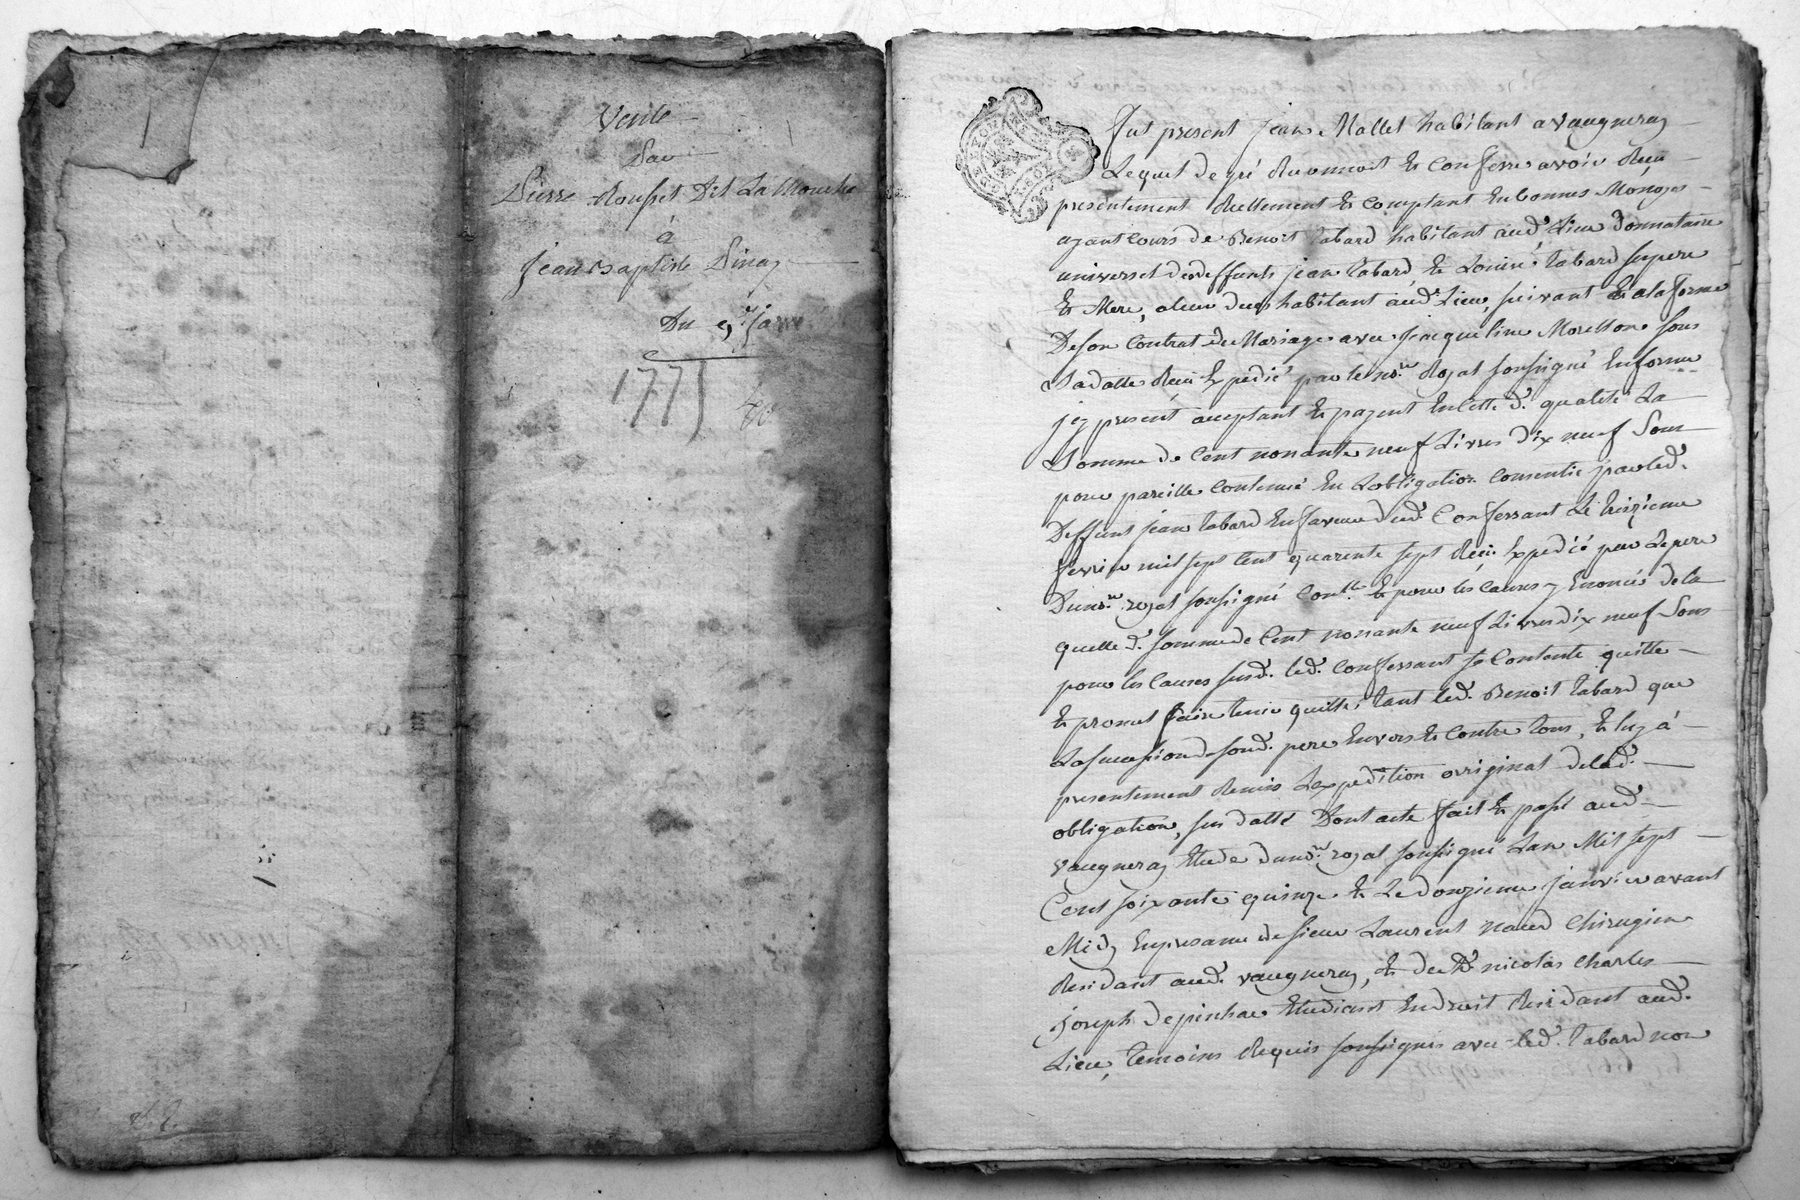 Vente
Par
Pierre Rousset Dit La Mouche
à
Jean Baptiste Pinay
Du 9e Janv
1775
Fut present jean Mallet habitant a vaugneray
Lequel de gré Reconnoit Et Confesse avoir Reçu
presentement Reellement Et Comptant En bonnes Monoyes
ayant Cours de Benoit Tabard habitant aud. Lieu Donnataire
universel de deffunts jean Tabard Et Louise Tabard ses pere
Et Mere, a leur deces habitant aud. Lieu, suivant Et a la forme
De son Contrat de Mariage avec jacqueline Morellon sous
Sa datte Reçu Expedié par le nore. Royal soussigné En forme
jcy present acceptant Et payant En Cette d. qualité La
Somme de Cent nonante neuf Livres dix neuf Sous
pour pareille Contenue En Lobligation Consentie par led.
Deffunt jean Tabard En faveur dud. Confessant Le treizieme
fevrier mil sept Cent quarente sept Reçu Expedié par Le pere
Du nore. royal soussigné Contlle. Et pour les Causes y Enoncés de la
quelle d. somme de Cent nonante neuf Livres dix neuf Sous
pour les Causes susd. led. Confessant se Contente quitte
Et promet faire tenir quitte tant led. Benoit Tabard que
La succession de sond. pere Envers Et Contre tous, Et luy à
presentement Remis Lexpedition original de lad.
obligation, sus datté Dont acte fait Et passé aud.
vaugneray Etude du nore. royal soussigné Lan Mil sept
Cent soixante quinze Et Le douzieme janvier avant
Midy En presance de sieur Laurent Chirugien
Residant aud. vaugneray, Et de Me nicolas Charles
joseph Etudiant En droit Residant aud.
Lieu, temoins Requis soussignés avec led. Tabard non